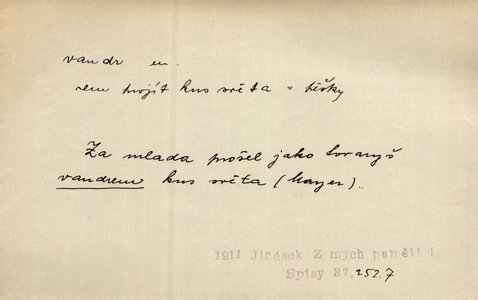 vandr m.
rem projít kus světa = pěšky
Za mlada prošel jako tovaryš
vandrem kus světa (Mayer).
1911 Jirásek Z mých pamětí 1.
Spisy 37. 252,7